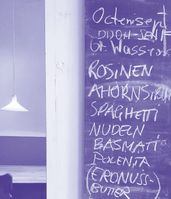 Octensept
DUSCH-
dr. Wasser
ROSINEN
AHORNSIRUP
SPAGHETTI
NUDELN
BASMATI
POLENTA
(ERDNUSS-
BUTTER)